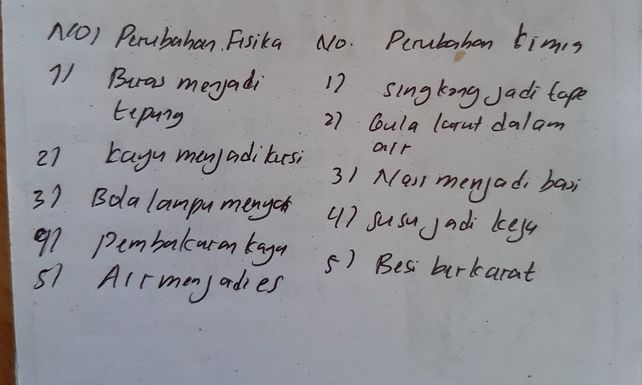 NO) Perubahan Fisika
1) Beras menjadi
tepung
2) kayu menjadi kursi
3) Bola lampu menyala
4) pembakaran kayu
5) Air menjadi es
No. Perubahan kimia
1) singkong jadi tape
2) Gula larut dalam
air
3) Nasi menjadi basi
4) susu jadi keju
5) Besi berkarat